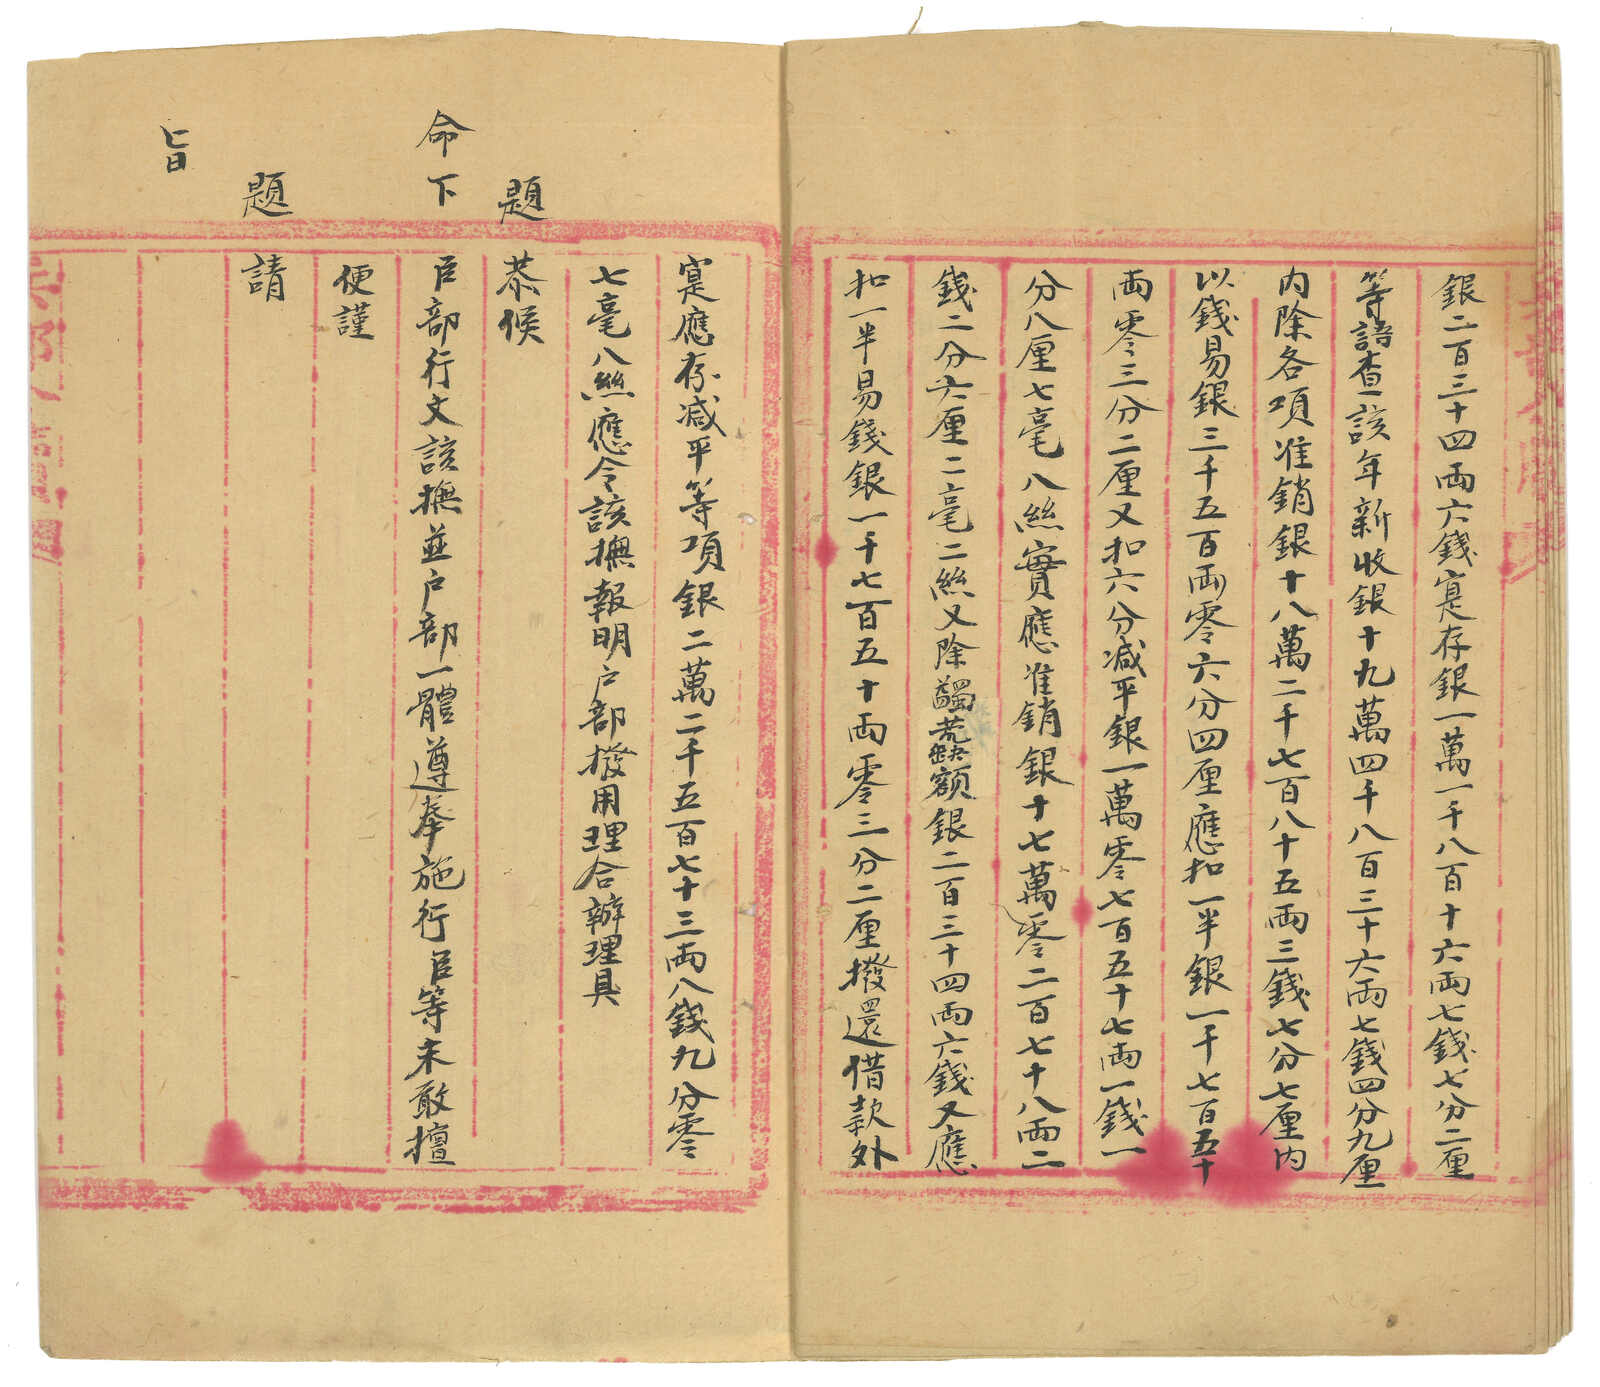 銀二百三十四両六錢寔存銀一萬一千八百十六両七錢七分二厘
等語查該年新收銀十九萬四千八百三十六両七錢四分九厘
内除各項准銷銀十八萬二千七百八十五両三錢七分七厘内
以錢易銀三千五百両零六分四厘應扣一半銀一千七百五十
両零三分二厘又扣六分減平銀一萬零七百五十七両一錢一
分八厘七毫八絲實應准銷銀十七萬零二百七十八両二
錢二分六厘二毫二絲又除蠲荒缺額銀二百三十四両六錢又應
扣一半易錢銀一千七百五十両零三分二厘撥還借款外
寔應存減平等項銀二萬二千五百七十三両八錢九分零
七毫八絲應令該撫報明户部撥用理合辦理具
題
恭候
命下
臣部行文該撫並户部一體遵奉施行臣等未敢擅
便謹
題
請
旨